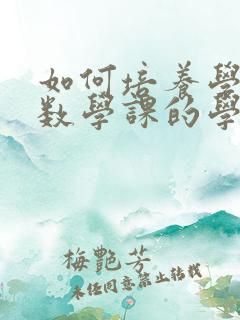 如何培養學
數學課的學
梅艷芳
未經同意禁止轉載